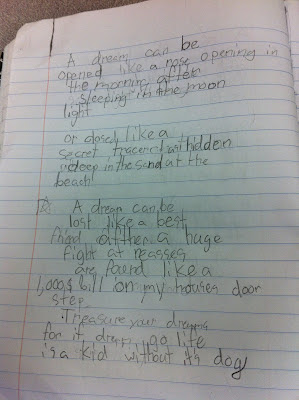 A dream can be
opened like a rose opening in
the morning after
sleeping in the moon
light
or closed like a
secret hidden
deep in the sand at the
beach
A dream can be
lost like a best
frind after a huge
fight at
are found like a
1,000$ bill on my houses door
step
Treasure your dreams
for if dreams go life
is a kid without it's dog